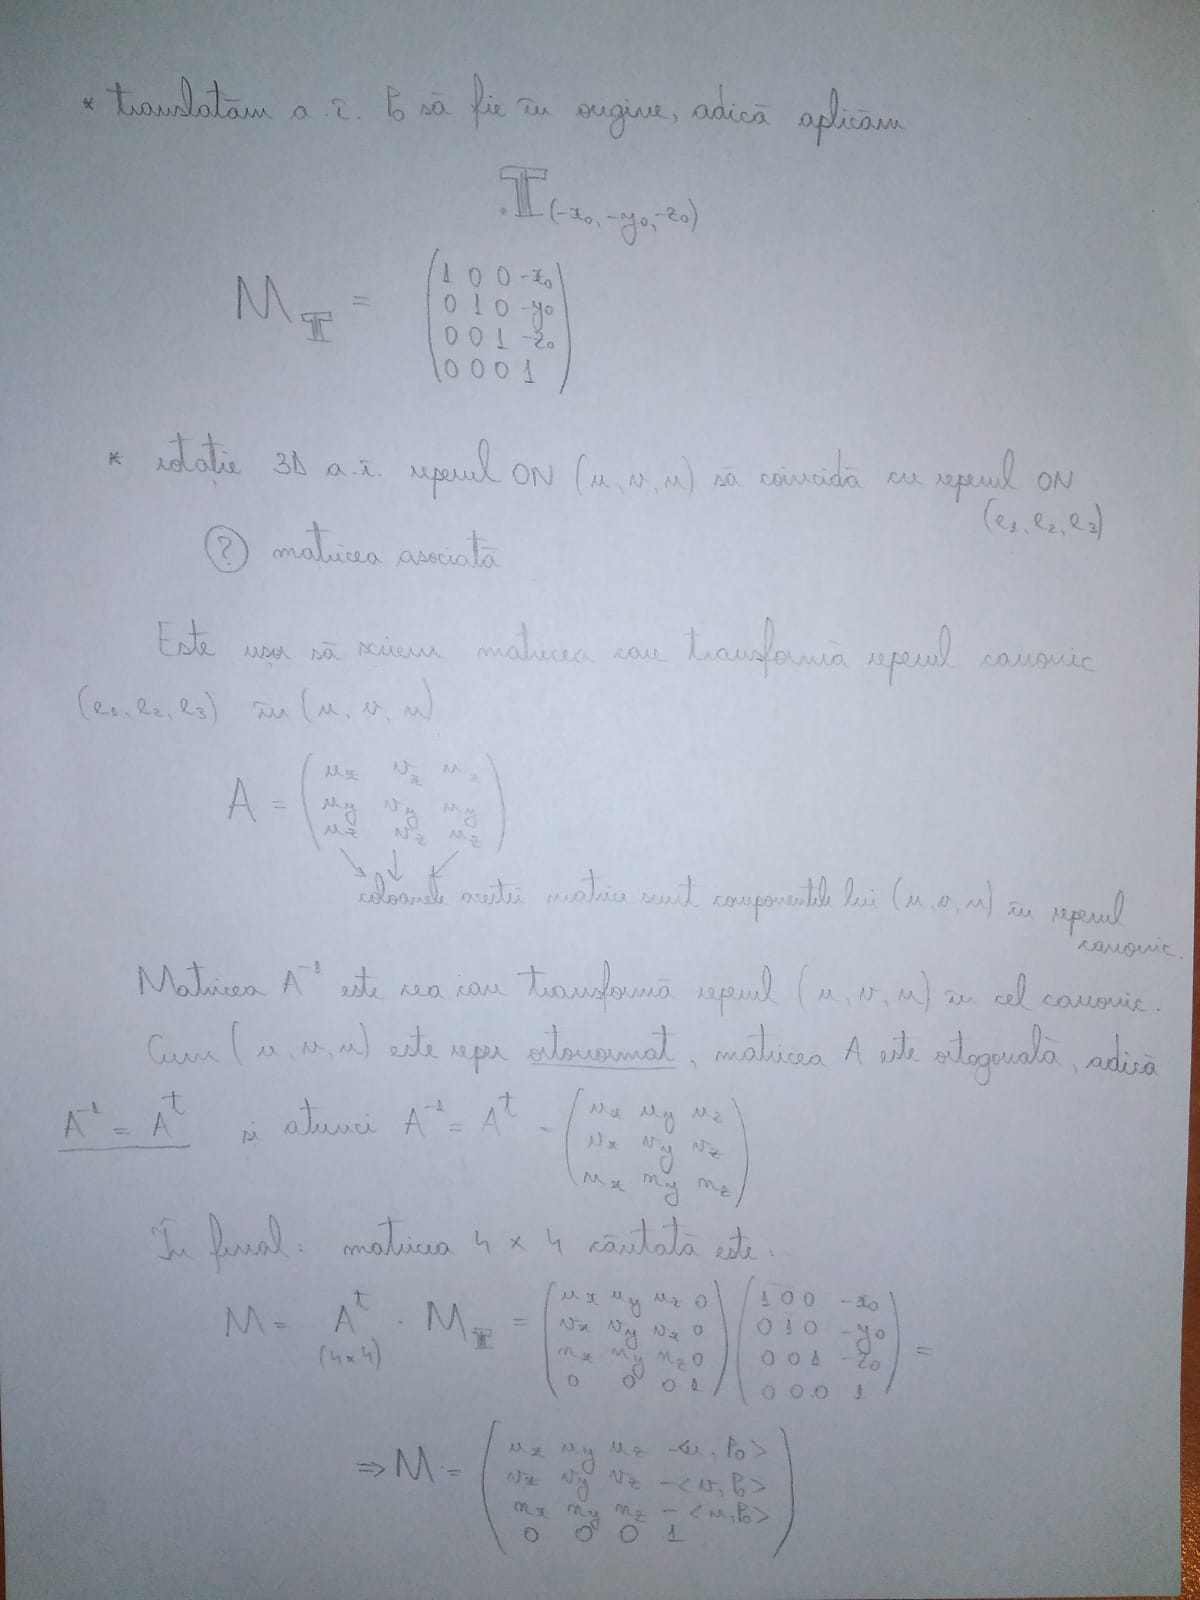 * translatăm a.î. P₀ să fie în origine, adică aplicăm
𝕋(-x₀, -y₀, -z₀)
M_𝕋 = (1 0 0 -x₀
0 1 0 -y₀
0 0 1 -z₀
0 0 0 1)
* rotație 3D a.î. reperul ON (u, v, n) să coincidă cu reperul ON
(e₁, e₂, e₃)
(?) matricea asociată
Este ușor să scriem matricea care transformă reperul canonic
(e₁, e₂, e₃) în (u, v, n)
A = (u_x v_x n_x
u_y v_y n_y
u_z v_z n_z)
↘ ↓ ↙
coloanele acestei matrice sunt componentele lui (u, v, n) în reperul
canonic.
Matricea A⁻¹ este cea care transformă reperul (u, v, n) în cel canonic.
Cum (u, v, n) este reper ortonormat, matricea A este ortogonală, adică
A⁻¹ = Aᵗ și atunci A⁻¹ = Aᵗ = (u_x u_y u_z
v_x v_y v_z
n_x n_y n_z)
În final: matricea 4 × 4 căutată este:
M = Aᵗ · M_𝕋 = (u_x u_y u_z 0) (1 0 0 -x₀)
(4×4) (v_x v_y v_z 0) (0 1 0 -y₀) =
(n_x n_y n_z 0) (0 0 1 -z₀)
(0 0 0 1) (0 0 0 1)
⇒ M = (u_x u_y u_z -<u, P₀>
v_x v_y v_z -<v, P₀>
n_x n_y n_z -<n, P₀>
0 0 0 1)